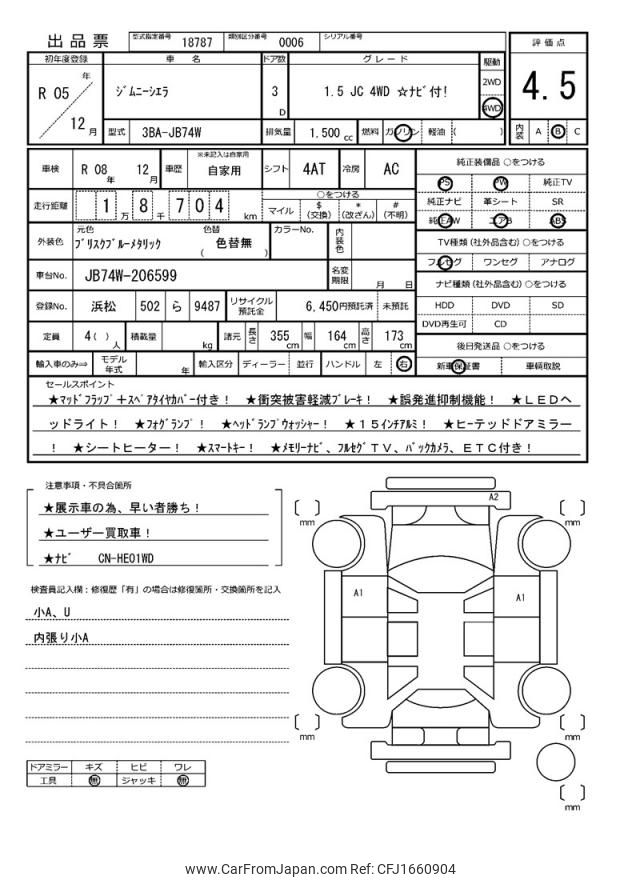 出品票 型式指定番号 18787 類別区分番号 0006 シリアル番号
評価点
4.5
初年度登録 車名 ドア数 グレード 駆動
R 05 年 12 月 ジムニーシエラ 3 D 1.5 JC 4WD ☆ナビ付! 2WD 4WD
型式 3BA-JB74W 排気量 1.500 cc 燃料 ガソリン 軽油 ( ) 内装 A B C
車検 R 08 年 12 月 車歴 ※未記入は自家用 自家用 シフト 4AT 冷房 AC
純正装備品 ○をつける
PS PW 純正TV
純正ナビ 革シート SR
純正AW エアB ABS
走行距離 1 万 8 千 7 0 4 km
○をつける
マイル $ (交換) * (改ざん) # (不明)
外装色 元色 ブリスクブルーメタリック 色替 ( 色替無 ) カラーNo. 内装色
TV種類 (社外品含む) ○をつける
フルセグ ワンセグ アナログ
車台No. JB74W-206599 名変期限 月 日
ナビ種類 (社外品含む) ○をつける
HDD DVD SD
DVD再生可 CD
登録No. 浜松 502 ら 9487 リサイクル預託金 6,450円預託済 未預託
定員 4( ) 人 積載量 kg 諸元 長さ 355 cm 幅 164 cm 高さ 173 cm
後日発送品 ○をつける
新車保証書 車輌取説
輸入車のみ⇒ モデル年式 年 輸入区分 ディーラー 並行 ハンドル 左 右
セールスポイント
★マッドフラップ+スペアタイヤカバー付き! ★衝突被害軽減ブレーキ! ★誤発進抑制機能! ★LEDヘ
ッドライト! ★フォグランプ! ★ヘッドランプウォッシャー! ★15インチアルミ! ★ヒーテッドドアミラー
! ★シートヒーター! ★スマートキー! ★メモリーナビ、フルセグTV、バックカメラ、ETC付き!
注意事項・不具合箇所
★展示車の為、早い者勝ち!
★ユーザー買取車!
★ナビ CN-HE01WD
検査員記入欄:修復歴「有」の場合は修復箇所・交換箇所を記入
小A、U
内張り小A
A2
mm
mm
A1
A1
mm
mm
mm
ドアミラー キズ ヒビ ワレ
工具 無 ジャッキ 無
www.CarFromJapan.com Ref: CFJ1660904